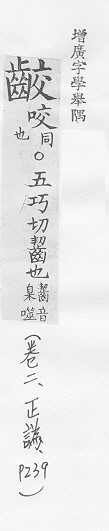 增廣字學舉隅
齩咬同也。五巧切齧也齧音臬噬
（卷二、正譌、P239）